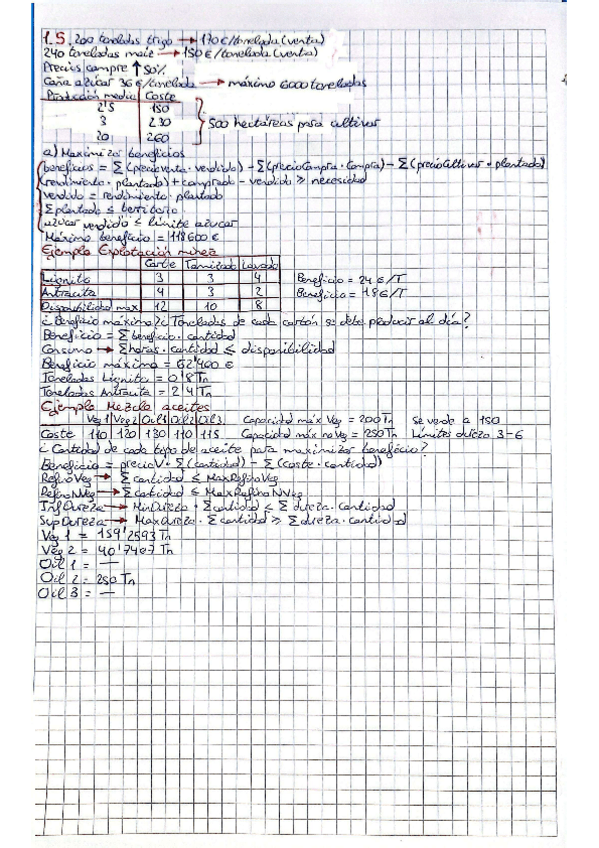 1.5. 200 toneladas trigo → 170€/tonelada (venta)
240 toneladas maíz → 150€/tonelada (venta)
Precios compra ↑ 50%
Caña azúcar 36€/tonelada → máximo 6000 toneladas
Producción media Coste
2'5 150
3 230 500 hectáreas para cultivar
20 260
a) Maximizar beneficios
beneficios = Σ(precioVenta · vendido) - Σ(precioCompra · Compra) - Σ(precioCultivar · plantado)
(rendimiento · plantado) + comprado - vendido ≥ necesidad
vendido = rendimiento · plantado
Σ plantado ≤ territorio
azúcar vendido ≤ límite azúcar
Máximo beneficio = 118600€
Ejemplo Explotación minera
Corte Tamizado Lavado
Lignito 3 3 4 Beneficio = 24€/T
Antracita 4 3 2 Beneficio = 18€/T
Disponibilidad max 12 10 8
¿Beneficio máximo? ¿Toneladas de cada carbón se debe producir al día?
Beneficio = Σ beneficio · cantidad
Consumo → Σ horas · cantidad ≤ disponibilidad
Beneficio máximo = 62'400€
Toneladas Lignito = 0'8 Tn
Toneladas Antracita = 2'4 Tn
Ejemplo Mezcla aceites
Veg1 Veg2 Oil1 Oil2 Oil3 Capacidad máx Veg = 200 Tn se vende a 150
Coste 110 120 130 110 115 Capacidad máx noVeg = 250 Tn Límites dureza 3-6
¿Cantidad de cada tipo de aceite para maximizar beneficio?
Beneficio = precioV · Σ(cantidad) - Σ(coste · cantidad)
RefinoVeg → Σ cantidad ≤ MaxRefinoVeg
RefinoNVeg → Σ cantidad ≤ MaxRefinoNVeg
InfDureza → MinDureza · Σ cantidad ≤ Σ dureza · cantidad
SupDureza → MaxDureza · Σ cantidad ≥ Σ dureza · cantidad
Veg 1 = 159'2593 Tn
Veg 2 = 40'7407 Tn
Oil 1 = —
Oil 2 = 250 Tn
Oil 3 = —